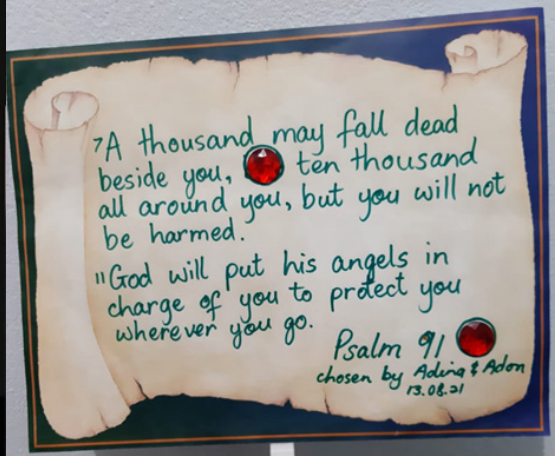 ⁷A thousand may fall dead
beside you, ten thousand
all around you, but you will not
be harmed.
¹¹God will put his angels in
charge of you to protect you
wherever you go.
Psalm 91
chosen by Adina & Adon
13.08.21